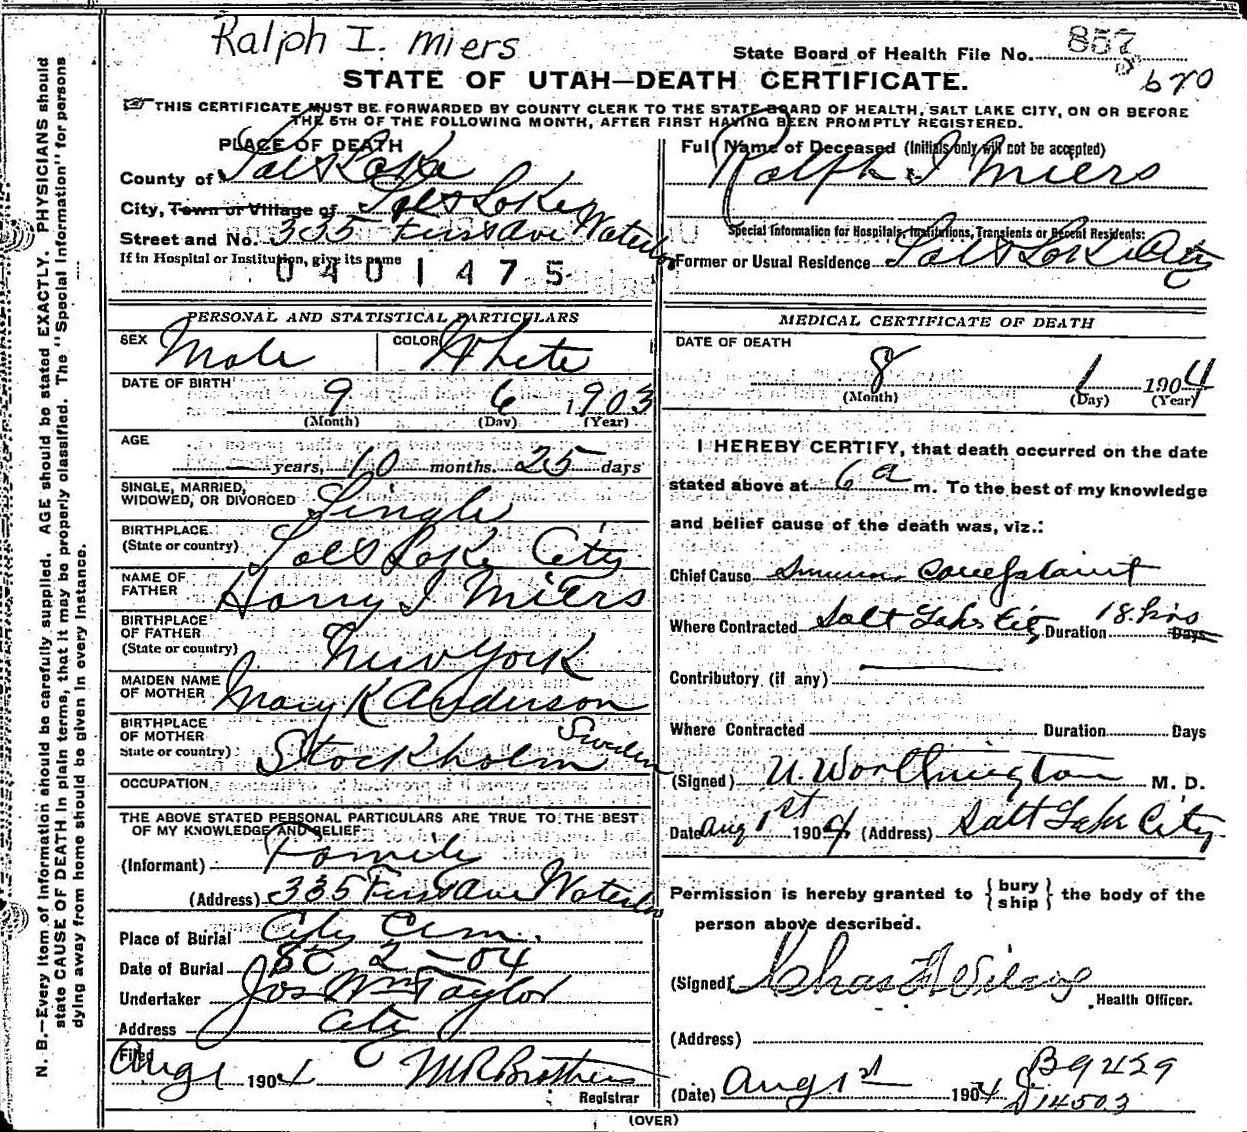 Ralph I. Miers
State Board of Health File No. 857
STATE OF UTAH—DEATH CERTIFICATE.
670
THIS CERTIFICATE MUST BE FORWARDED BY COUNTY CLERK TO THE STATE BOARD OF HEALTH, SALT LAKE CITY, ON OR BEFORE
THE 5TH OF THE FOLLOWING MONTH, AFTER FIRST HAVING BEEN PROMPTLY REGISTERED.
PLACE OF DEATH
County of Salt Lake
City, Town or Village of Salt Lake
Street and No. 335 First Ave Waterloo
If in Hospital or Institution, give its name
0401475
Full Name of Deceased (Initials only will not be accepted)
Ralph I Miers
Special Information for Hospitals, Institutions, Transients or Recent Residents:
Former or Usual Residence Salt Lake City
PERSONAL AND STATISTICAL PARTICULARS
SEX Male COLOR White
DATE OF BIRTH 9 6 1903
(Month) (Day) (Year)
AGE — years, 10 months. 25 days
SINGLE, MARRIED,
WIDOWED, OR DIVORCED Single
BIRTHPLACE
(State or country) Salt Lake City
NAME OF
FATHER Harry I Miers
BIRTHPLACE
OF FATHER
(State or country) New York
MAIDEN NAME
OF MOTHER Mary K Anderson
BIRTHPLACE
OF MOTHER
State or country) Stockholm Sweden
OCCUPATION
THE ABOVE STATED PERSONAL PARTICULARS ARE TRUE TO THE BEST
OF MY KNOWLEDGE AND BELIEF
(Informant) Family
(Address) 335 First Ave Waterloo
Place of Burial City Cem.
Date of Burial 2 - 04
Undertaker Jos Wm Taylor
Address City
Filed Aug 1 1904 M R Brothers
Registrar
MEDICAL CERTIFICATE OF DEATH
DATE OF DEATH
8 1 1904
(Month) (Day) (Year)
I HEREBY CERTIFY, that death occurred on the date
stated above at 6 a m. To the best of my knowledge
and belief cause of the death was, viz.:
Chief Cause Summer Complaint
Where Contracted Salt Lake City Duration 18 hrs Days
Contributory (if any) —
Where Contracted Duration Days
(Signed) U. Worthington M. D.
Date Aug 1st 1904 (Address) Salt Lake City
Permission is hereby granted to { bury ship } the body of the
person above described.
(Signed) Chas F Wilcox
Health Officer.
(Address)
(Date) Aug 1st 1904
B9429
D14503
(OVER)
N. B.—Every item of information should be carefully supplied. AGE should be stated EXACTLY. PHYSICIANS should
state CAUSE OF DEATH in plain terms, that it may be properly classified. The "Special Information" for persons
dying away from home should be given in every instance.